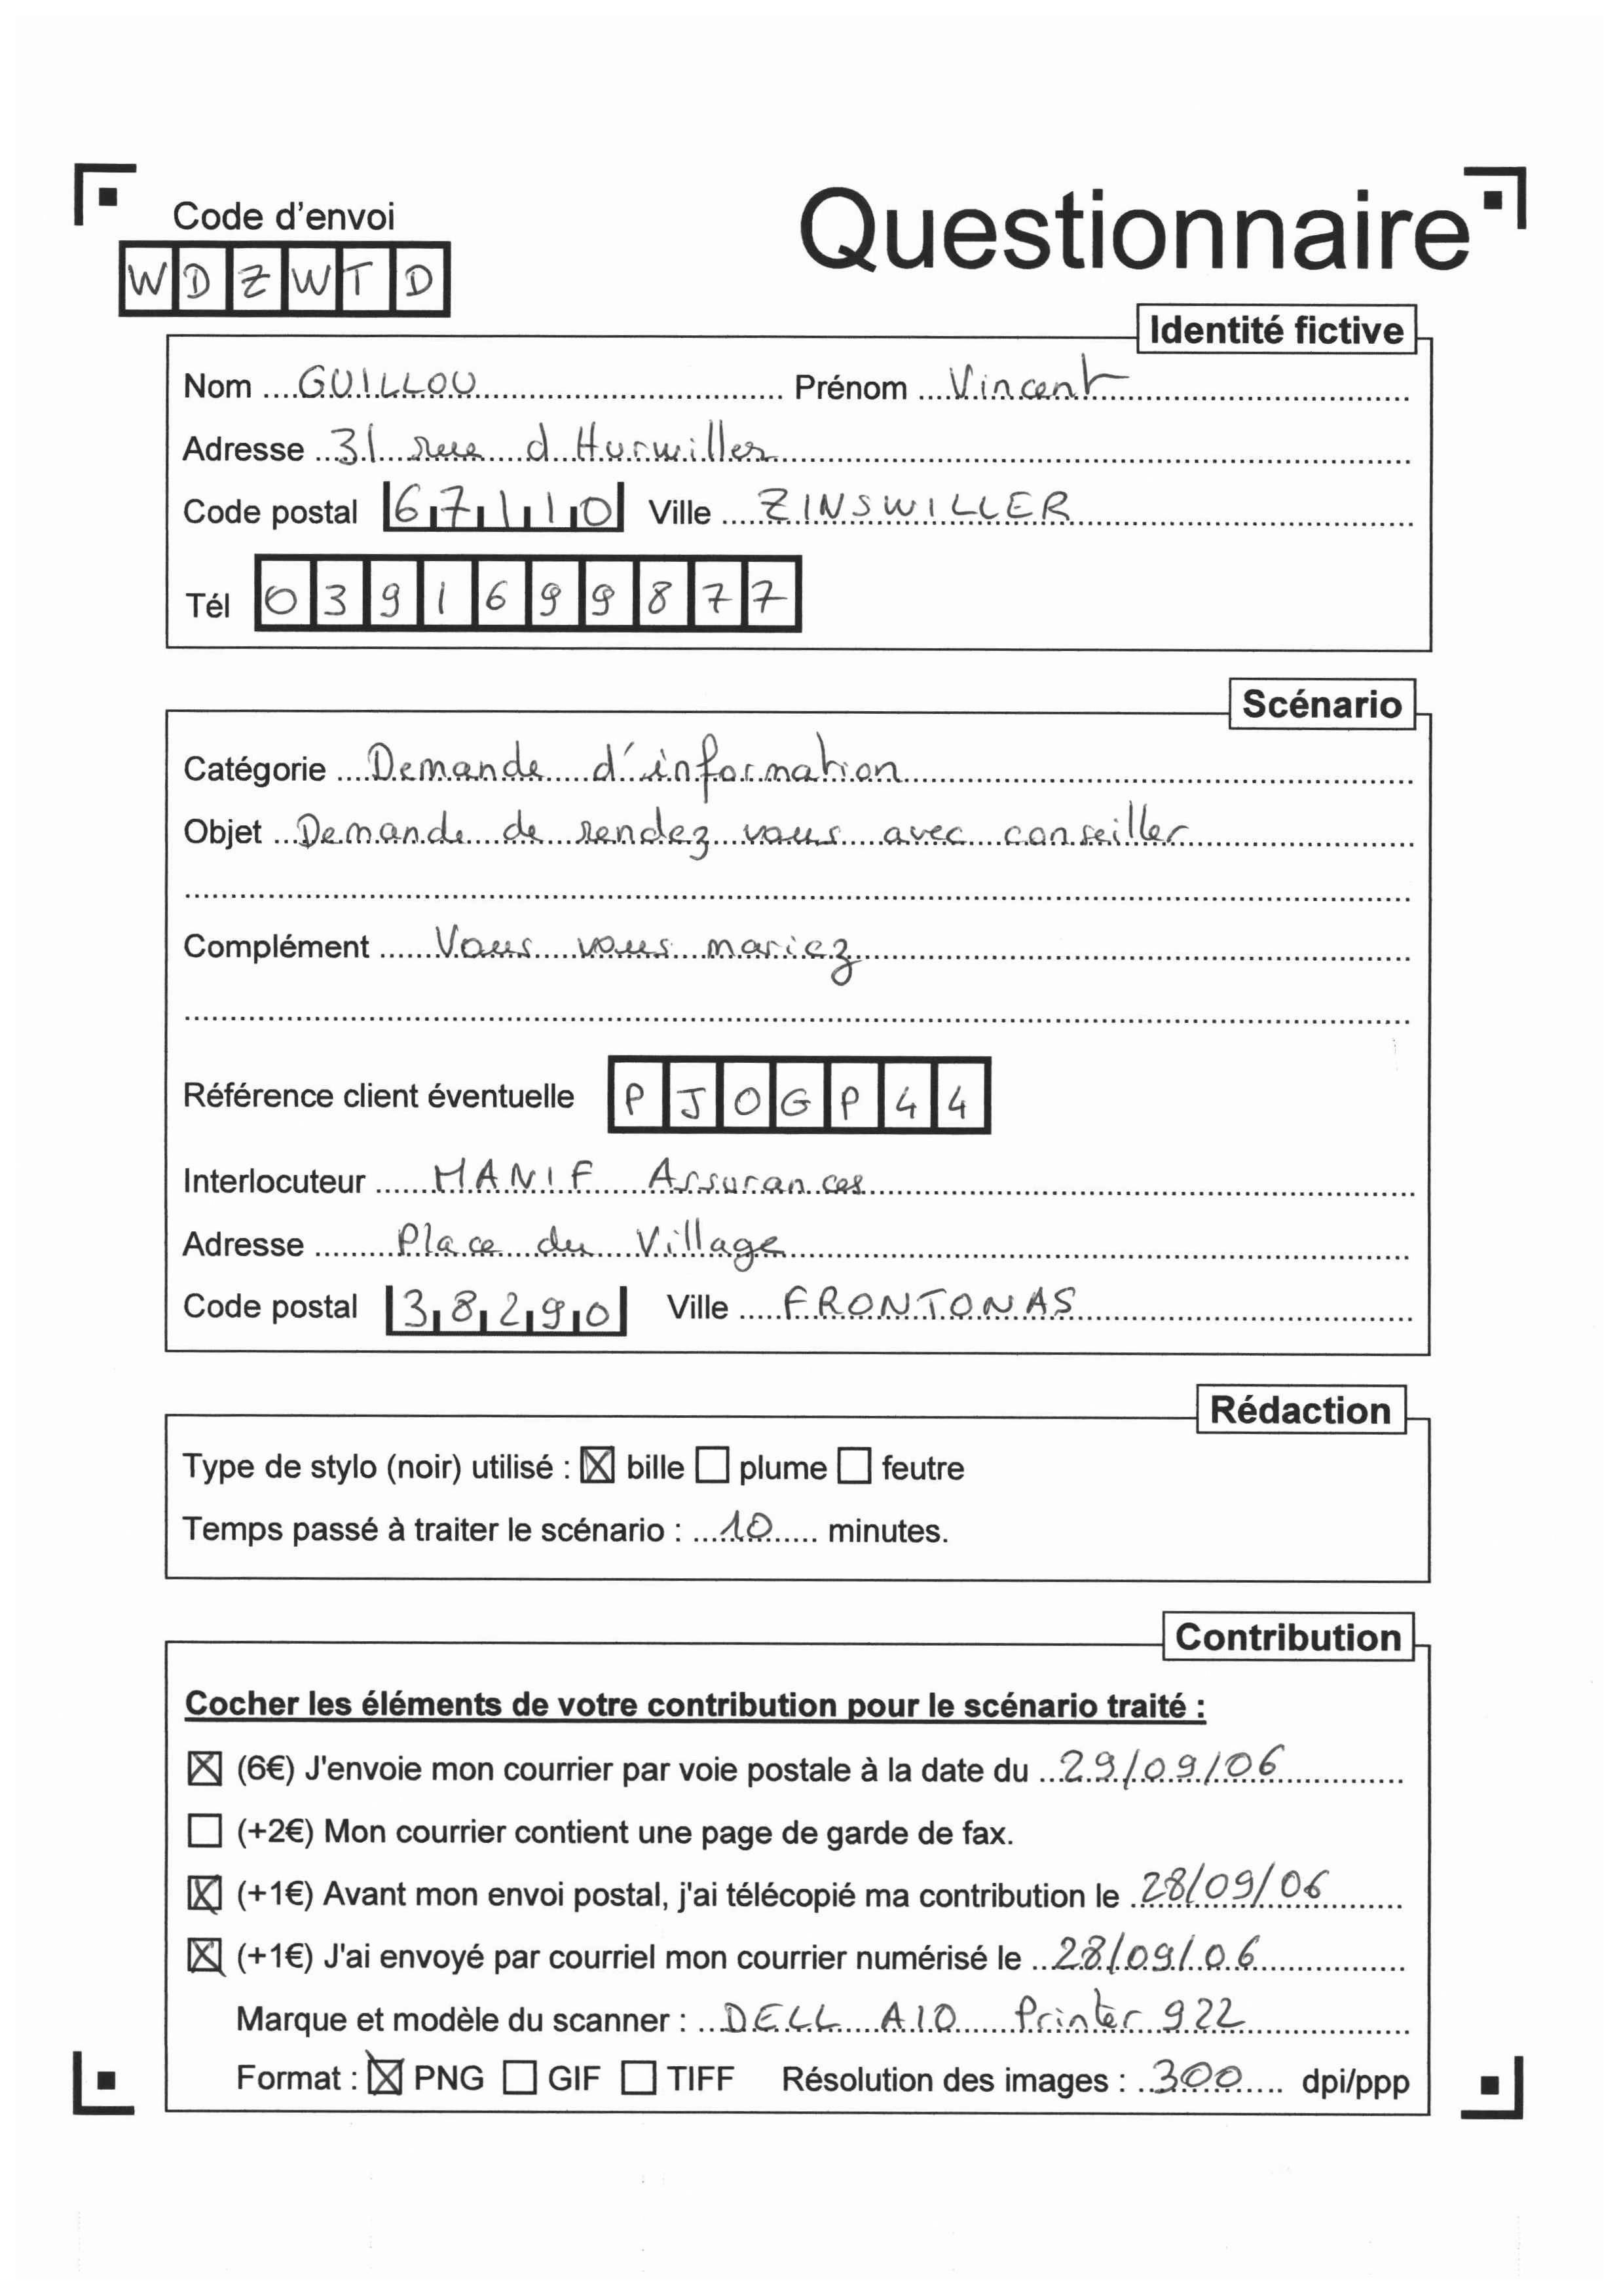 Code d'envoi
Questionnaire
WDZWTD
Identité fictive
Nom GUILLOU Prénom Vincent
Adresse 31 rue d Hurwiller
Code postal 67110 Ville ZINSWILLER
Tél 0391699877
Scénario
Catégorie Demande d'information
Objet Demande de rendez vous avec conseiller
Complément Vous vous mariez
Référence client éventuelle PJOGP44
Interlocuteur MANIF Assurances
Adresse Place du Village
Code postal 38290 Ville FRONTONAS
Rédaction
Type de stylo (noir) utilisé : ☒ bille ☐ plume ☐ feutre
Temps passé à traiter le scénario : 10 minutes.
Contribution
Cocher les éléments de votre contribution pour le scénario traité :
☒ (6€) J'envoie mon courrier par voie postale à la date du 29/09/06
☐ (+2€) Mon courrier contient une page de garde de fax.
☒ (+1€) Avant mon envoi postal, j'ai télécopié ma contribution le 28/09/06
☒ (+1€) J'ai envoyé par courriel mon courrier numérisé le 28/09/06
Marque et modèle du scanner : DELL AIO Printer 922
Format : ☒ PNG ☐ GIF ☐ TIFF Résolution des images : 300 dpi/ppp